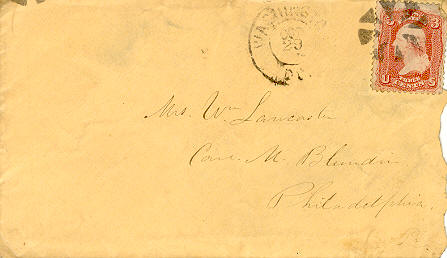 WASHINGTON
OCT
29
D.C.
3 3
U THREE S
CENTS
Mrs. Wm Lancaster
Care M. Blundin
Philadelphia.
Pa